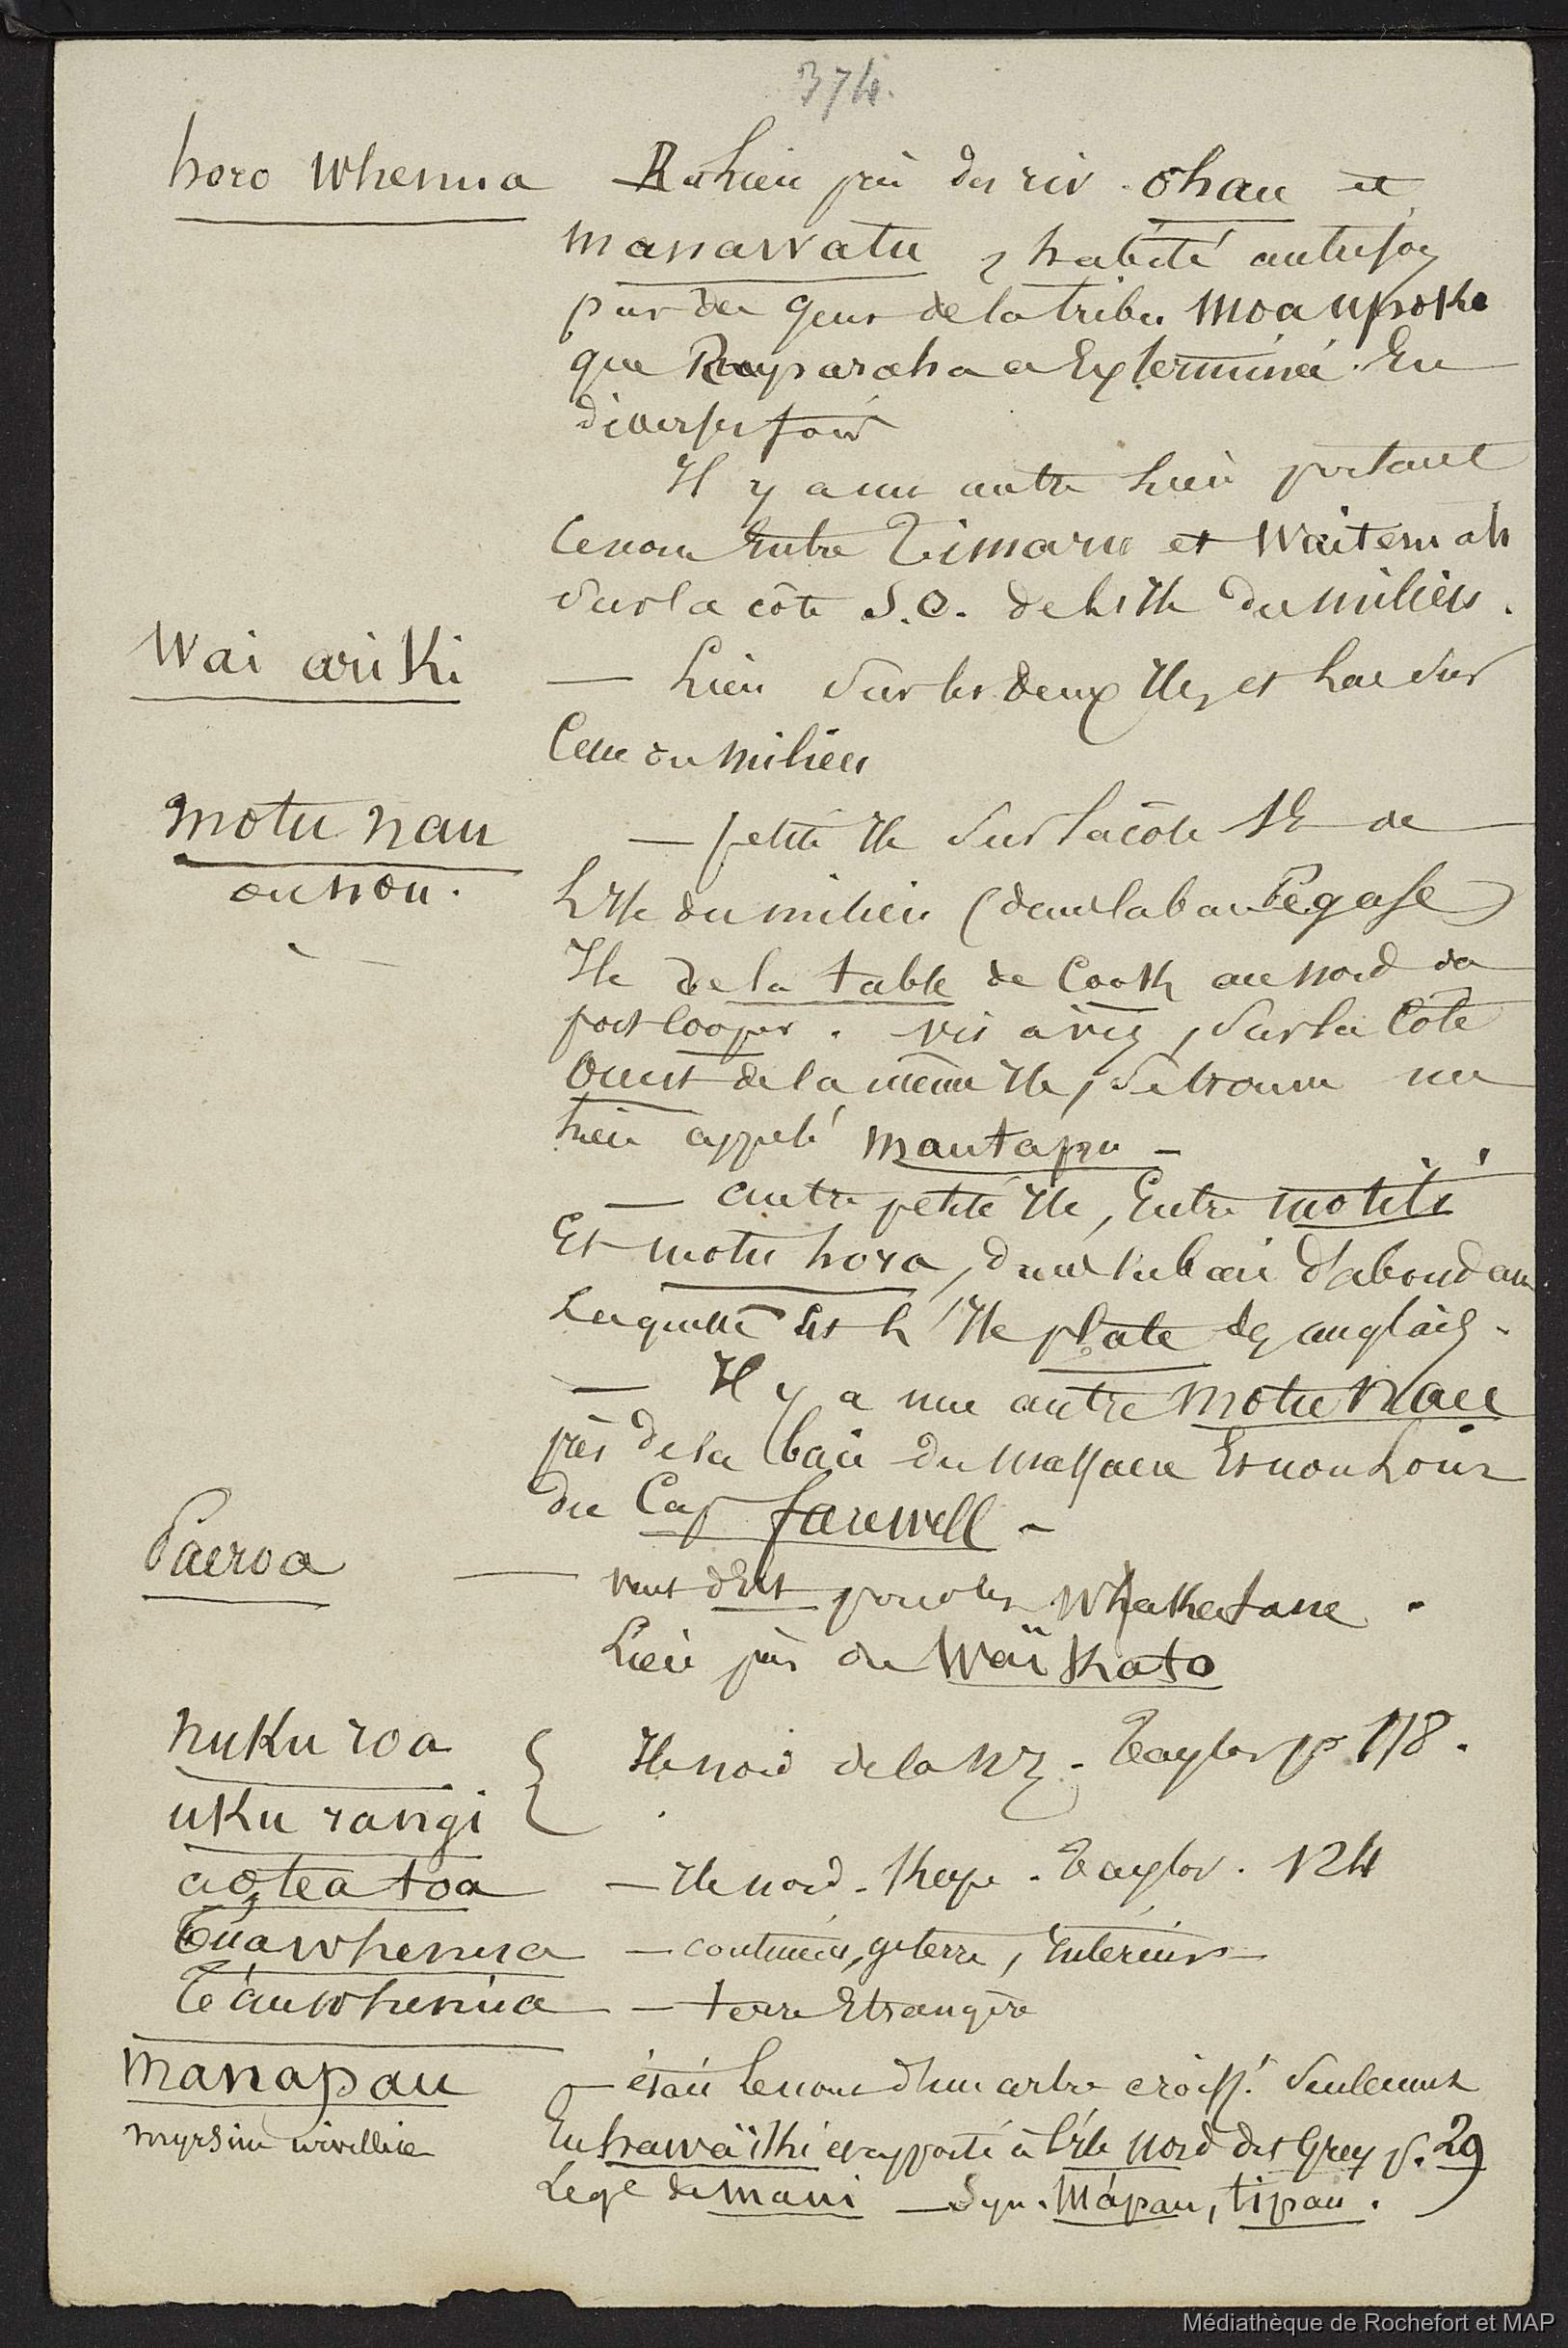 374.
horo whenua lieu près des riv. ohau et
manawatu, habité autrefois
par des gens de la tribu moaupoko
que Rauparaha a Exterminé. En
diverses fois
Il y a un autre lieu portant
ce nom Entre Timaru et Waitemah
sur la côte S.O. de l'Ile du milieu.
Wai ariki — Lieu sur les deux Iles et Lac sur
Celle du milieu
motu nau — petite Ile sur la côte de
ou nou. L'Ile du milieu (dans la baie Pégase)
Ile de la table de Cook au nord du
port Cooper. vis à vis, sur la Côte
Ouest de la même Ile, se trouve un
lieu appelé mautapu —
— autre petite Ile, Entre motiti
Et motu hora, dans la baie d'abondan
laquelle est l'Ile plate des anglais.
— Il y a une autre motu nau
près de la baie du massacre Et non Loin
du Cap farewell —
Paeroa — vent d'Est pour les Whakatane.
Lieu près du Waïkato
nuku roa
uku rangi } Ile nord de la NZ. Taylor p 118.
aotea toa — Ile nord. Taylor. 124
Tuawhenua — continent, gde terre, Intérieur
Te auwhenua — terre Etrangère
manapau — était Le nom d'un arbre croisst seulement
myrsine urvillier En hawaïki et apporté à l'Ile nord des Grey p. 29
Lege de maui — Syn. Mápau, tipau.
Médiathèque de Rochefort et MAP